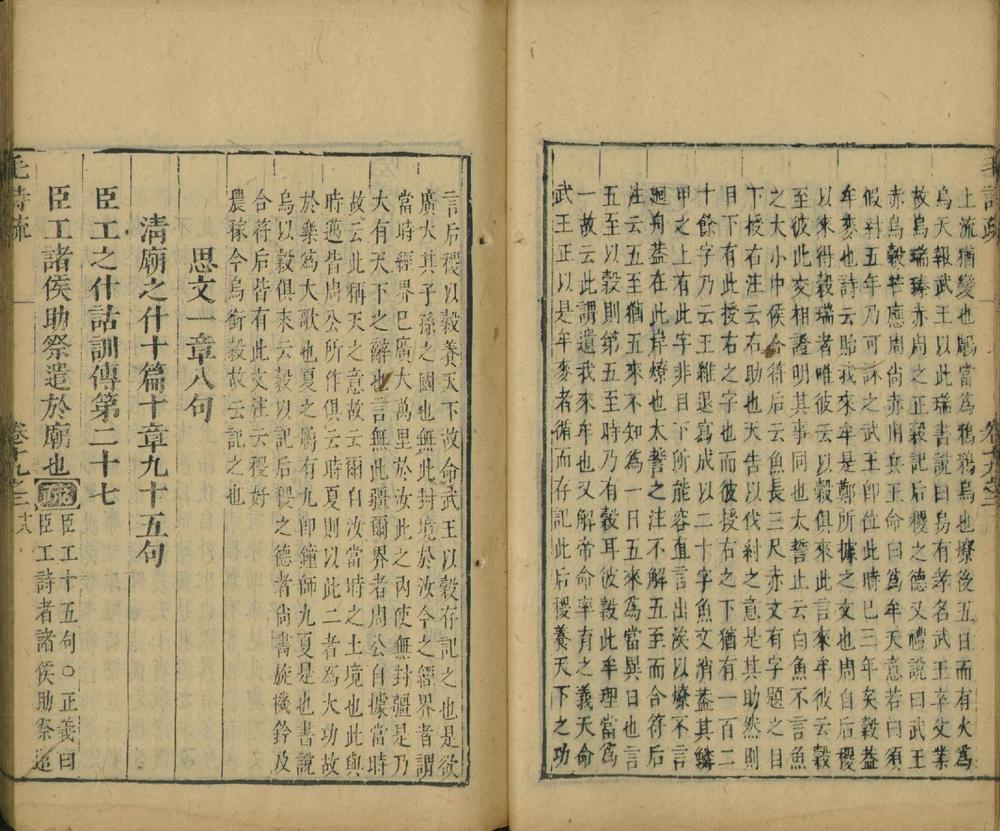 毛詩疏
卷十九之二
上流猶變也鵰當爲鴉鴉烏也燎後五日而有火爲
烏天報武王以此瑞書說曰烏有孝名武王卒父業
故烏瑞臻赤周之正穀記后稷之德又禮說曰武王
赤烏穀芒應周尚赤用兵王命曰爲牟天意若曰須
假紂五年乃可誅之武王即位此時已三年矣穀蓋
牟麥也詩云貽我來牟是鄭所據之文也周自后稷
以來得穀瑞者唯彼云以穀俱來此言來牟彼云穀
至彼此交相證明其事同也太誓止云白魚不言魚
之大小中候合符后云魚長三尺赤文有字題之目
下授右注云右助也天告以伐紂之意是其助然則
目下有此授右之字也而彼授右之下猶有一百二
十餘字乃云王維退寫成以二十字魚文消蓋其鱗
甲之上有此字非目下所能容直言出涘以燎不言
廻舟蓋在此岸燎也太誓之注不解五至而合符后
注云五至猶五來不知為一日五來為當異日也言
五至以穀則第五至時乃有穀耳此牟理當爲
一故云此謂遺我來牟也又解帝命率育之義天命
武王正以是牟麥者循而存記此后稷養天下之功
言后稷以穀養天下故命武王以穀存記之也是欲
廣大其子孫之國也無此封境於汝今之經界者謂
當時經界巳廣大萬里於汝此之內使無封疆是乃
大有天下之辭也言無此疆爾界者周公自據當時
故云此稱天之意故云爾自汝當時之土境也此與
時邁皆周公所作俱云時夏則以此二者爲大功故
於樂爲大歌也夏之屬有九即鐘師九夏是也書說
烏以穀俱來云穀以記后稷之德者尚書旋機鈐及
合符后皆有此文注云稷好
農稼今烏銜穀故云記之也
思文一章八句
清廟之什十篇十章九十五句
臣工之什詁訓傳第二十七
臣工諸侯助祭遣於廟也 疏
臣工十五句○正義曰
臣工詩者諸侯助祭遣
毛詩疏
卷十九之二